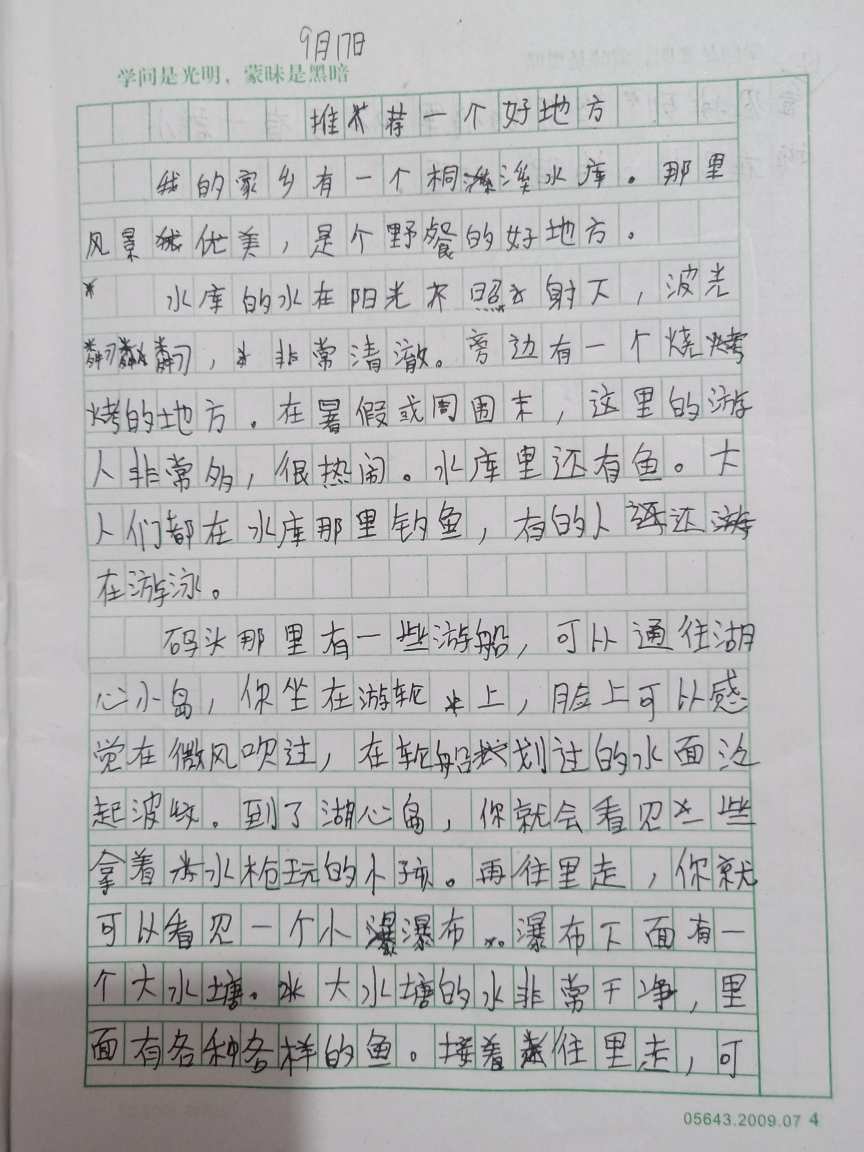 9月17日
学问是光明，蒙昧是黑暗
推荐一个好地方
我的家乡有一个桐溪水库。那里
风景优美，是个野餐的好地方。
水库的水在阳光照射下，波光
翻翻，非常清澈。旁边有一个烧
烤的地方。在暑假或周围末，这里的游
人非常多，很热闹。水库里还有鱼。大
人们都在水库那里钓鱼，有的人还
在游泳。
码头那里有一些游船，可以通往湖
心小岛，你坐在游轮上，脸上可以感
觉在微风吹过，在轮船划过的水面泛
起波纹。到了湖心岛，你就会看见一些
拿着水枪玩的小孩。再往里走，你就
可以看见一个小瀑布。瀑布下面有一
个大水塘。大水塘的水非常干净，里
面有各种各样的鱼。接着往里走，可
05643.2009.07 4